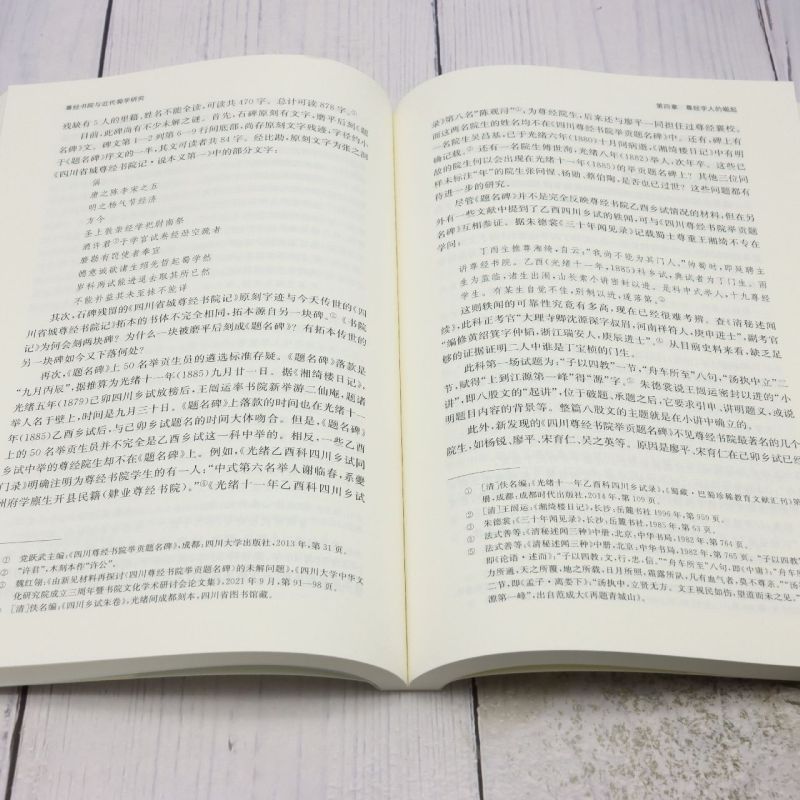 尊经书院与近代蜀学研究
残缺有5人的里籍，姓名不能全读，可读共470字。总计可读878字。①
目前，此碑尚有不少未解之谜。首先，石碑原刻有文字，磨平后刻《题
名碑》文。碑文第1—2到第6—9行间底部，尚存原刻文字残迹，字径约小
于《题名碑》序文的一半，其文可读者共84字。经比勘，原刻文字为张之洞
《四川省城尊经书院记·说本义第一》中的部分文字：
俱
唐之陈李宋之五
明之杨气节经济
方今
圣上敦崇经学祀尉南祭
酒许君②于学官试卷经策空疏者
磨勘有罚使者奉宣
德意诚欲诸生绍先哲起蜀学然
岁科两试能进退去取其所已然
不能补益其未至株不能详
其次，石碑残留的《四川省城尊经书院记》原刻字迹与今天传世的《四
川省城尊经书院记》拓本的书体不完全相同，拓本源自另一块碑。③《书院
记》为何会刻两块碑？为什么一块被磨平后刻成《题名碑》？有拓本传世的
另一块碑如今又下落何处？
再次，《题名碑》上50名举贡生员的遴选标准存疑。《题名碑》落款是
“九月丙辰”，据推算为光绪十一年(1885)九月廿一日。据《湘绮楼日记》，
光绪五年(1879)己卯四川乡试放榜后，王闿运率书院新举游二仙庵，题诸
举人名于壁上，时间是九月三十日。《题名碑》上落款的时间也在光绪十一
年(1885)乙酉乡试后，与己卯乡试题名的时间大体吻合。但是，《题名碑》
上的50名举贡生员并不完全是乙酉乡试这一科中举的。相反，一些乙酉
乡试中举的尊经院生却不在《题名碑》上。例如，《光绪乙酉科四川乡试同
门录》明确注明为尊经书院学生的有一人：“中式第六名举人谢临春，系夔
州府学廪生开县民籍(肄业尊经书院)。”④《光绪十一年乙酉科四川乡试
① 党跃武主编：《四川尊经书院举贡题名碑》，成都：四川大学出版社，2013年，第31页。
② “许君”，木刻本作“许公”。
③ 魏红翎：《由新见材料再探讨〈四川尊经书院举贡题名碑〉的未解问题》，《四川大学中华文
化研究院成立三周年暨书院文化学术研讨会论文集》，2021年9月，第91—98页。
[清]佚名编：《四川乡试朱卷》，光绪间成都刻本，四川省图书馆藏。
第四章 尊经学人的崛起
录》第八名“陈观浔”①，为尊经院生，后来还与廖平一同担任过尊经襄校。
而这两名院生的姓名均不在《四川尊经书院举贡题名碑》中。还有，碑上有
一名院生吴昌基，已于光绪六年(1880)十月间病逝，《湘绮楼日记》中有明
确记载。②还有一名院生傅世洵，光绪八年(1882)举人，次年卒。这些已
故的院生何以会出现在光绪十一年(1885)的举贡题名碑上？其他三位同
样未标注“年”的院生张问惺、杨勋、蔡伯陶，是否也已过世？这些问题都有
待进一步的研究。
尽管《题名碑》并不是完全反映尊经书院乙酉乡试情况的材料，但在另
外有一些文献中提到了乙酉四川乡试的轶闻，可与《四川尊经书院举贡题
名碑》互相参证。据朱德裳《三十年闻见录》记载蜀士尊重王湘绮不专在
学问：
丁酉生推尊湘绮，自云：“我尚不能为其门人。”仲蜀时，即延聘主
讲尊经书院。乙酉(光绪十一年，1885)科乡试，典试者为丁门生。而
生为监临，诸生出闱，山长索小讲密封以进。是科中式举人，十九尊经
学生。有某生自觉不佳，别制以进，遂落第。③
这则轶闻的可靠性究竟有多高，现在已经很难考辨。查《清秘述闻
续》，此科正考官“大理寺卿沈源深字叔眉，河南祥符人，庚申进士”，副考官
“编修黄绍箕字仲韬，浙江瑞安人，庚辰进士”。④从目前史料来看，缺乏足
够的证据证明二人中谁是丁宝桢的门生。
此科第一场试题为：“子以四教”一节，“舟车所至”八句，“汤执中立”二
节，赋得“上到江源第一峰”得“源”字。⑤朱德裳说王闿运密封以进的“小
讲”，即八股文的“起讲”，位于破题、承题之后，它要求引申、讲明题义，或说
明题目内容的背景等。整篇八股文的主题就是在小讲中确立的。
此外，新发现的《四川尊经书院举贡题名碑》不见尊经书院最著名的几个
院生，如杨锐、廖平、宋育仁、吴之英等。原因是廖平、宋育仁在己卯乡试已经
① [清]佚名编：《光绪十一年乙酉科四川乡试录》，《蜀藏·巴蜀珍稀教育文献汇刊》第
册，成都：成都时代出版社，2014年，第109页。
② [清]王闿运：《湘绮楼日记》，长沙：岳麓书社1996年，第959页。
③ 朱德裳：《三十年闻见录》，长沙：岳麓书社，1985年，第53页。
④ 法式善等：《清秘述闻三种》中册，北京：中华书局，1982年，第764页。
⑤ 法式善等：《清秘述闻三种》中册，北京：中华书局，1982年，第765页。“子以四教”
即《论语·述而》：“子以四教，文，行，忠，信。”“舟车所至”八句，即《中庸》：“舟车所至，
力所通，天之所覆，地之所载，日月所照，霜露所队，凡有血气者，莫不尊亲。”“汤执中立
二节，即《孟子·离娄下》：“汤执中，立贤无方。文王视民如伤，望道而未之见。”
源第一峰”，出自范成大《再题青城山》。